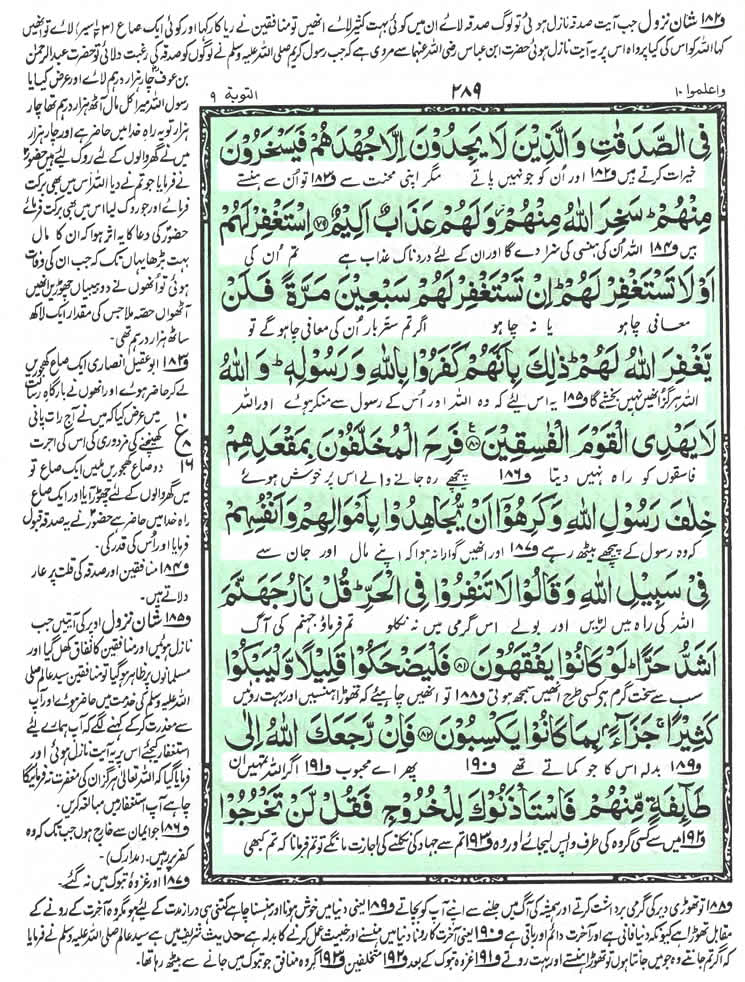 و۱۸۲ شان نزول جب آیت صدقہ نازل ہوئی تو لوگ صدقہ لائے ان میں کوئی بہت کثیر لائے انھیں تو منافقین نے ریاکار کہا اور کوئی ایک صاع (۳½ سیر) لائے تو انھیں
کہا اللہ کو اس کی کیا پرواہ اس پر یہ آیت نازل ہوئی حضرت ابن عباس رضی اللہ عنہما سے مروی ہے کہ جب رسول کریم صلی اللہ علیہ وسلم نے لوگوں کو صدقہ کی رغبت دلائی تو حضرت عبدالرحمٰن
بن عوف چار ہزار درہم لائے اور عرض کیا یا
رسول اللہ میرا کل مال آٹھ ہزار درہم تھا چار
ہزار تو یہ راہ خدا میں حاضر ہے اور چار ہزار
میں نے گھر والوں کے لئے روک لیے ہیں حضور
نے فرمایا جو تم نے دیا اللہ اس میں بھی برکت
فرمائے اور جو روک لیا اس میں بھی برکت فرمائے
حضور کی دعا کا یہ اثر ہوا کہ ان کا مال
بہت بڑھا یہاں تک کہ جب ان کی وفات
ہوئی تو انھوں نے دو بیبیاں چھوڑیں انھیں
آٹھواں حصہ ملا جس کی مقدار ایک لاکھ
ساٹھ ہزار درہم تھی۔
و۱۸۳ ابو عقیل انصاری ایک صاع کھجوریں
لے کر حاضر ہوئے اور انھوں نے بارگاہ رسالت
میں عرض کیا کہ میں نے آج رات پانی
کھینچنے کی مزدوری کی اس کی اجرت
دو صاع کھجوریں ملیں ایک صاع تو
میں گھر والوں کے لئے چھوڑ آیا اور ایک صاع
راہ خدا میں حاضر ہے حضور نے یہ صدقہ قبول
فرمایا اور اس کی قدر کی۔
و۱۸۴ منافقین اور صدقہ کی قلت پر عار
دلاتے ہیں۔
و۱۸۵ شان نزول اوپر کی آیتیں جب
نازل ہوئیں اور منافقین کا نفاق کھل گیا اور
مسلمانوں پر ظاہر ہو گیا تو منافقین سید عالم صلی
اللہ علیہ وسلم کی خدمت میں حاضر ہوئے اور آپ
سے معذرت کر کے کہنے لگے کہ آپ ہمارے لئے
استغفار کیجئے اس پر یہ آیت نازل ہوئی اور
فرمایا گیا کہ اللہ تعالیٰ ہرگز ان کی مغفرت نہ فرمائیگا
چاہے آپ استغفار میں مبالغہ کریں۔
و۱۸۶ جو ایمان سے خارج ہوں جب تک کہ وہ
کفر پر رہیں۔ (مدارک)۔
و۱۸۷ اور غزوہ تبوک میں نہ گئے۔
۱۰
ع
۸
۱۶
واعلموا ۱۰
۲۸۹
التوبة ۹
فِی الصَّدَقٰتِ وَالَّذِیْنَ لَا یَجِدُوْنَ اِلَّا جُهْدَهُمْ فَیَسْخَرُوْنَ
خیرات کرتے ہیں و۱۸۲ اور ان کو جو نہیں پاتے مگر اپنی محنت سے و۱۸۳ تو ان سے ہنستے
مِنْهُمْ ؕ سَخِرَ اللّٰهُ مِنْهُمْ ؗ وَلَهُمْ عَذَابٌ اَلِیْمٌ ﴿۷۹﴾ اِسْتَغْفِرْ لَهُمْ
ہیں و۱۸۴ اللہ ان کی ہنسی کی سزا دے گا اور ان کے لئے دردناک عذاب ہے تم ان کی
اَوْ لَا تَسْتَغْفِرْ لَهُمْ ؕ اِنْ تَسْتَغْفِرْ لَهُمْ سَبْعِیْنَ مَرَّةً فَلَنْ
معافی چاہو یا نہ چاہو اگر تم ستر بار ان کی معافی چاہو گے تو
یَّغْفِرَ اللّٰهُ لَهُمْ ؕ ذٰلِكَ بِاَنَّهُمْ كَفَرُوْا بِاللّٰهِ وَرَسُوْلِهٖ ؕ وَاللّٰهُ
اللہ ہرگز انھیں نہیں بخشے گا و۱۸۵ یہ اس لئے کہ وہ اللہ اور اس کے رسول سے منکر ہوئے اور اللہ
لَا یَهْدِی الْقَوْمَ الْفٰسِقِیْنَ ﴿۸۰﴾ فَرِحَ الْمُخَلَّفُوْنَ بِمَقْعَدِهِمْ
فاسقوں کو راہ نہیں دیتا و۱۸۶ پیچھے رہ جانے والے اس پر خوش ہوئے
خِلٰفَ رَسُوْلِ اللّٰهِ وَكَرِهُوْۤا اَنْ یُّجَاهِدُوْا بِاَمْوَالِهِمْ وَاَنْفُسِهِمْ
کہ وہ رسول کے پیچھے بیٹھ رہے و۱۸۷ اور انھیں گوارا نہ ہوا کہ اپنے مال اور جان سے
فِیْ سَبِیْلِ اللّٰهِ وَقَالُوْا لَا تَنْفِرُوْا فِی الْحَرِّ ؕ قُلْ نَارُ جَهَنَّمَ
اللہ کی راہ میں لڑیں اور بولے اس گرمی میں نہ نکلو تم فرماؤ جہنم کی آگ
اَشَدُّ حَرًّا ؕ لَوْ كَانُوْا یَفْقَهُوْنَ ﴿۸۱﴾ فَلْیَضْحَكُوْا قَلِیْلًا وَّلْیَبْكُوْا
سب سے سخت گرم ہے کسی طرح انھیں سمجھ ہوتی و۱۸۸ تو انھیں چاہئے کہ تھوڑا ہنسیں اور بہت روئیں
كَثِیْرًا ۚ جَزَآءًۢ بِمَا كَانُوْا یَكْسِبُوْنَ ﴿۸۲﴾ فَاِنْ رَّجَعَكَ اللّٰهُ اِلٰی
و۱۸۹ بدلہ اس کا جو کماتے تھے و۱۹۰ پھر اے محبوب و۱۹۱ اگر اللہ تمہیں ان
طَآىِٕفَةٍ مِّنْهُمْ فَاسْتَاْذَنُوْكَ لِلْخُرُوْجِ فَقُلْ لَّنْ تَخْرُجُوْا
و۱۹۲ میں سے کسی گروہ کی طرف واپس لیجائے اور وہ و۱۹۳ تم سے جہاد کی نکلنے کی اجازت مانگے تو تم فرمانا کہ تم کبھی
و۱۸۸ تو تھوڑی دیر کی گرمی برداشت کرتے اور ہمیشہ کی آگ میں جلنے سے اپنے آپ کو بچاتے و۱۸۹ یعنی دنیا میں خوش ہونا اور ہنسنا چاہے کتنی ہی دراز مدت کے لیے ہو مگر وہ آخرت کے رونے کے
مقابل تھوڑا ہے کیونکہ دنیا فانی ہے اور آخرت دائم اور باقی ہے و۱۹۰ یعنی آخرت کا رونا دنیا میں ہنسنے اور خبیث عمل کرنے کا بدلہ ہے حدیث شریف میں ہے سید عالم صلی اللہ علیہ وسلم نے فرمایا
کہ اگر تم جانتے وہ جو میں جانتا ہوں تو تھوڑا ہنستے اور بہت روتے و۱۹۱ غزوہ تبوک کے بعد و۱۹۲ متخلفین و۱۹۳ اگر وہ منافق جو تبوک میں جانے سے بیٹھ رہا تھا۔